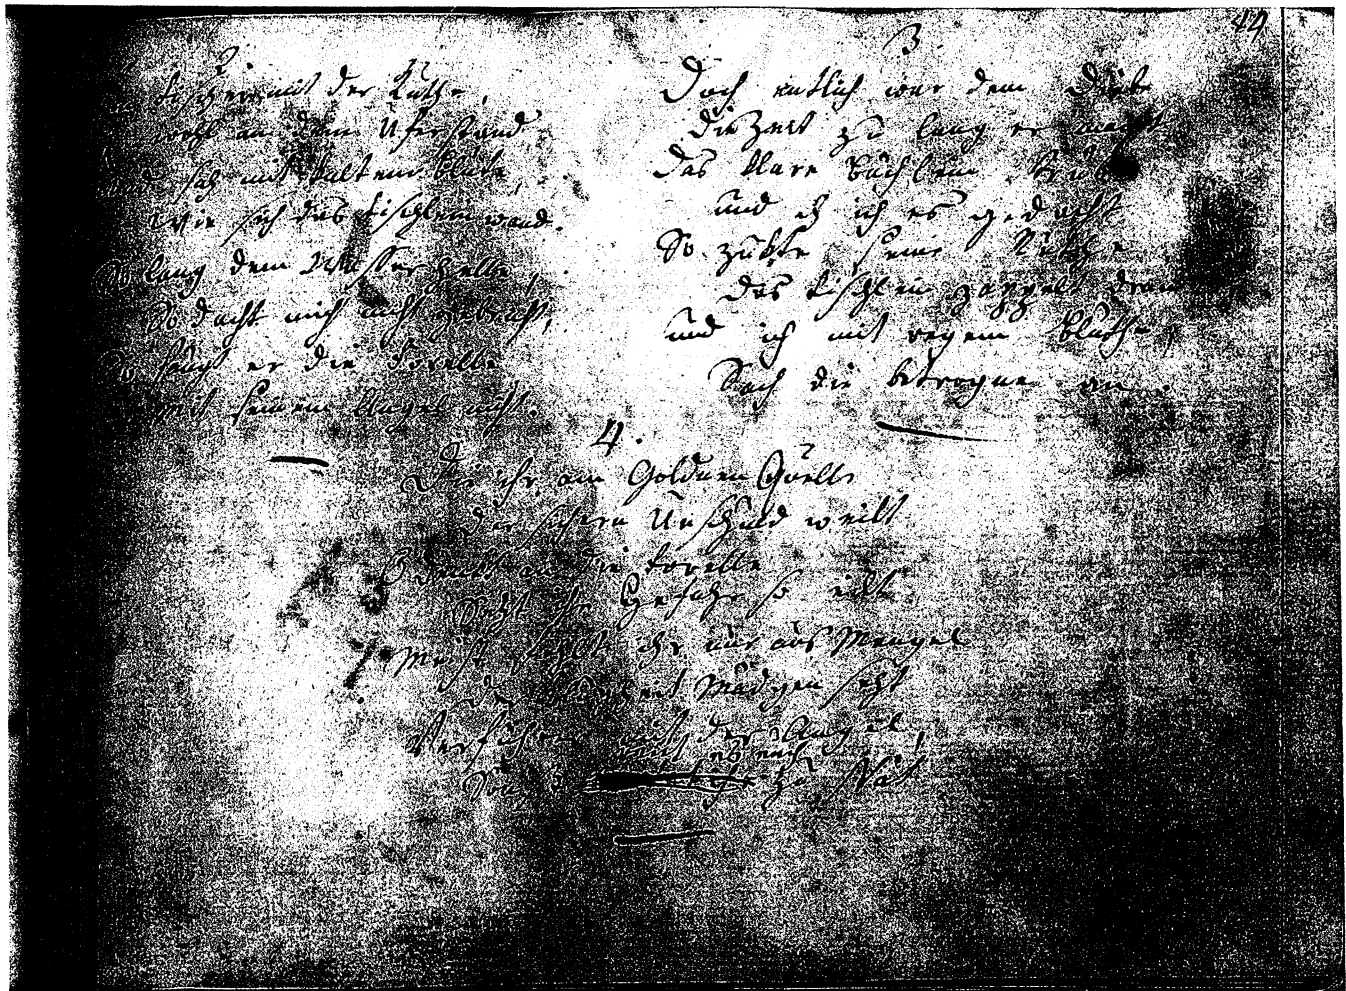 44
2.
Fischer mit der Ruthe,
wohl an dem Ufer stand
und sah mit kaltem Blute,
Wie sich das Fischlein wand.
So lang dem Wasser Helle,
So dacht mich nicht gebricht,
So fängt er die Forelle
mit seinem Angel nicht.
3.
Doch entlich war dem Diebe
die Zeit zu lang er macht
das klare Bächlein trübe
und eh ich es gedacht
So zukte seine Ruthe
das Fischlein zappelt dran
und ich mit regem Bluthe
Sach die betrogne an.
4.
Die ihr am Goldnen Quelle
der sichern Unschuld weilt
Denckt an die Forelle
Seht ihr Gefahr so eilt
Meist fehlt ihr nur aus Mangel
der Mädgen seht
Verführer mit der Angel,
euch
zu spät